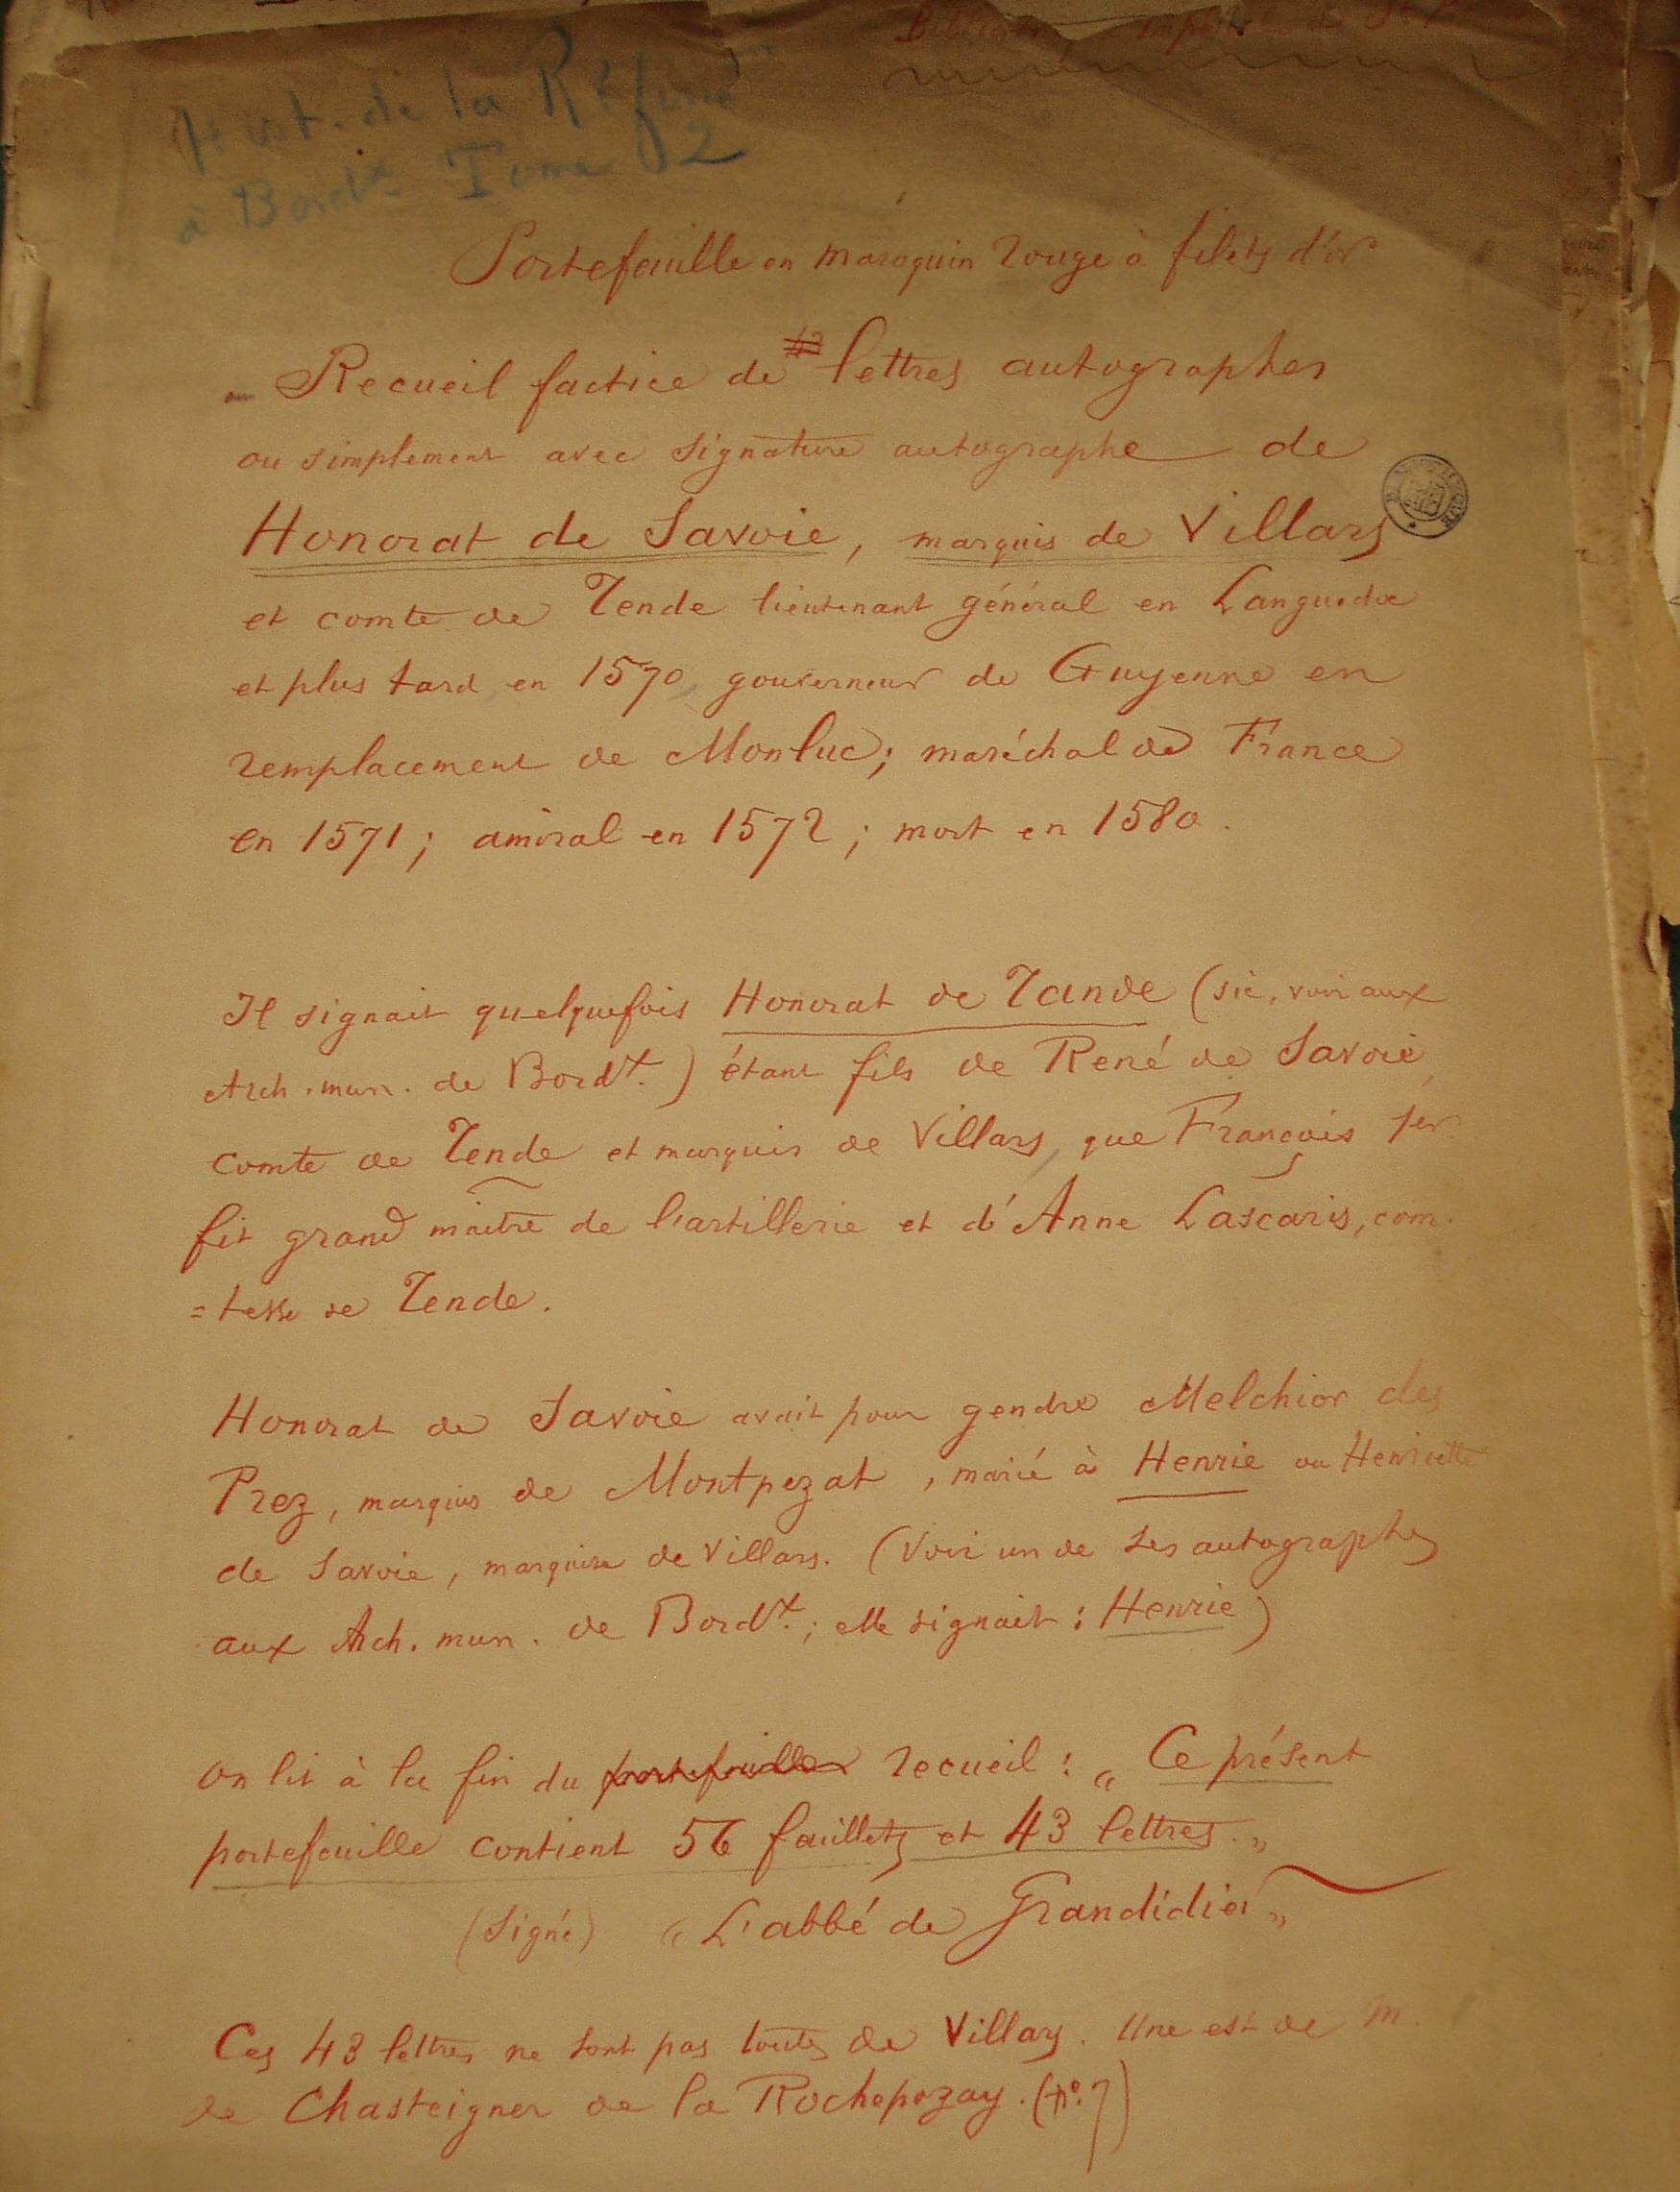 Hist. de la Réforme
à Bordx. Tome 2
Portefeuille en maroquin rouge à filets d'or
Recueil factice de 42 lettres autographes
ou simplement avec signature autographe de
Honorat de Savoie, marquis de Villars
et comte de Tende lieutenant général en Languedoc
et plus tard, en 1570, gouverneur de Guyenne en
remplacement de Monluc; maréchal de France
en 1571; amiral en 1572; mort en 1580.
Il signait quelquefois Honorat de Tande (sic, voir aux
Arch. mun. de Bordx.) étant fils de René de Savoie,
comte de Tende et marquis de Villars, que François 1er
fit grand maître de l'artillerie et d'Anne Lascaris, com-
=tesse de Tende.
Honorat de Savoie avait pour gendre Melchior des
Prez, marquis de Montpezat, marié à Henrie ou Henriette
de Savoie, marquise de Villars. (Voir un de ses autographes
aux Arch. mun. de Bordx.; elle signait: Henrie)
On lit à la fin du portefeuille recueil: „Ce présent
portefeuille contient 56 feuillets et 43 lettres.„
(Signé) „L'abbé de Grandidier„
Ces 43 lettres ne sont pas toutes de Villars. Une est de M.
de Chasteigner de la Rochepozay. (no. 7)